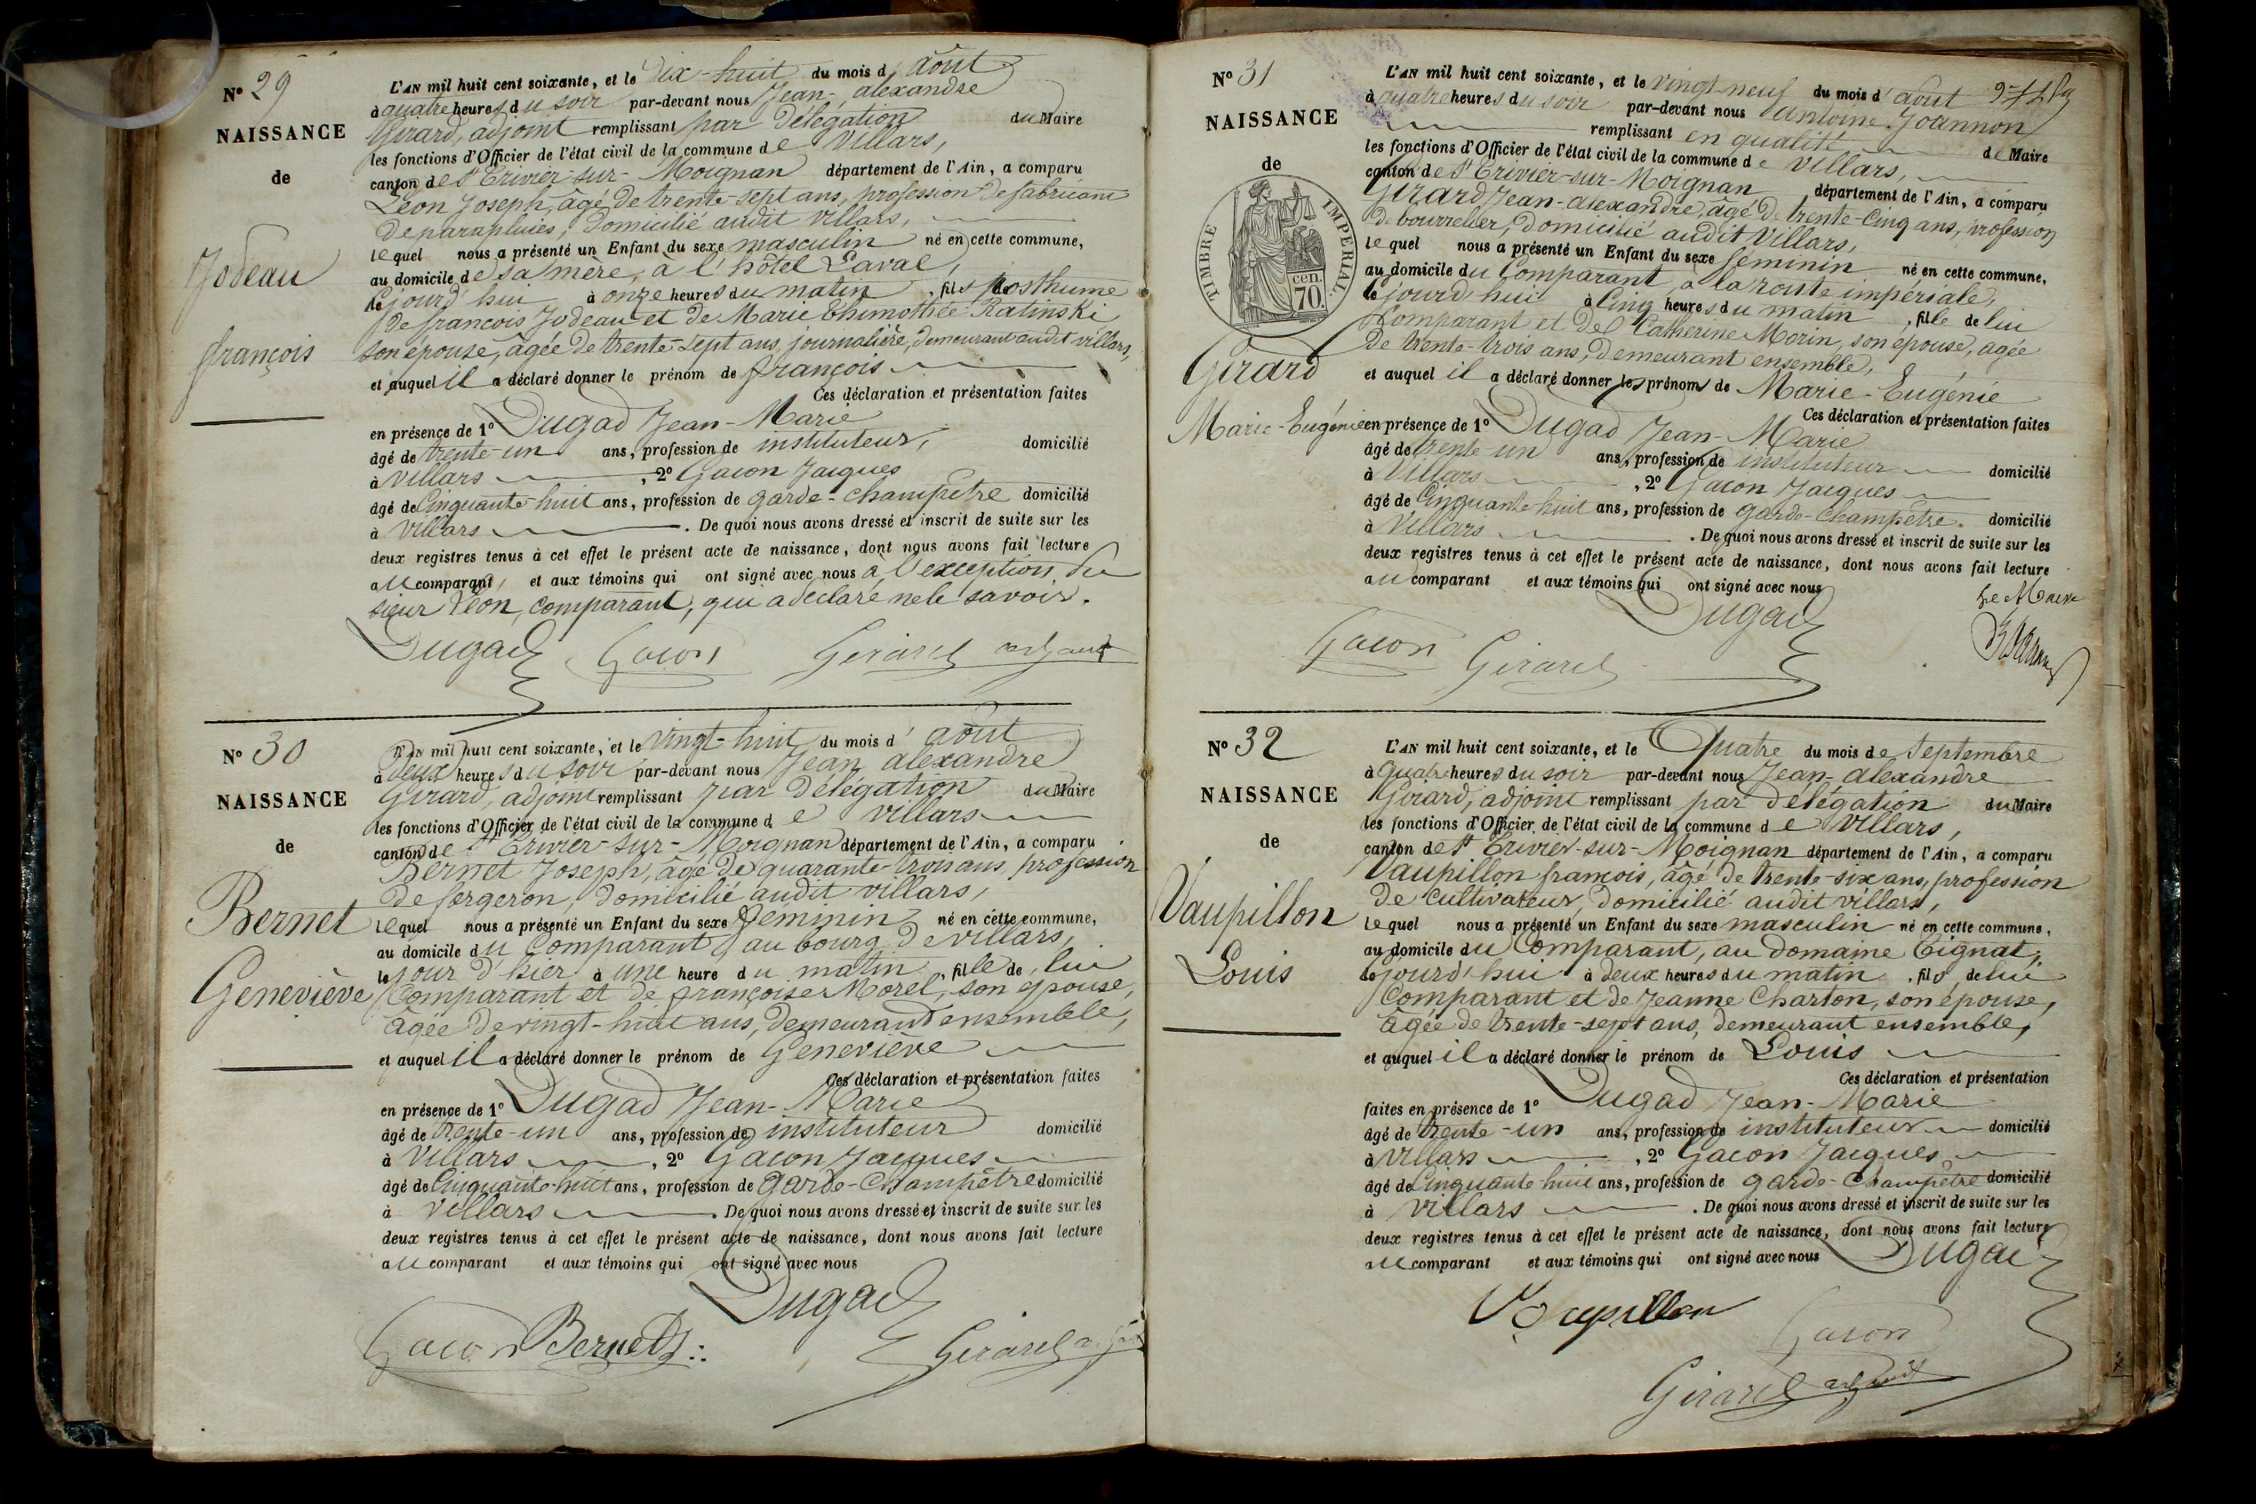 N° 29
NAISSANCE
de
Jodeau
françois
L'AN mil huit cent soixante, et le dix-huit du mois d'août
à quatre heures du soir par-devant nous Jean-alexandre
Girard, adjoint remplissant par délégation du Maire
les fonctions d'Officier de l'état civil de la commune de Villars,
canton de St Trivier-sur-Moignan département de l'Ain, a comparu
Léon Joseph, âgé de trente-sept ans, profession de fabricant
de parapluies, domicilié audit villars,
lequel nous a présenté un Enfant du sexe masculin né en cette commune,
au domicile de sa mère, à l'hôtel Laval,
cejourd'hui à onze heures du matin, fils posthume
de françois Jodeau et de Marie Thimothée Ratinski
son épouse, âgée de trente-sept ans, journalière, demeurant audit villars,
et auquel il a déclaré donner le prénom de françois
Ces déclaration et présentation faites
en présence de 1° Dugad Jean-Marie
âgé de trente-un ans, profession de instituteur, domicilié
à villars, 2° Gacon Jacques
âgé de Cinquante-huit ans, profession de garde-champêtre domicilié
à villars. De quoi nous avons dressé et inscrit de suite sur les
deux registres tenus à cet effet le présent acte de naissance, dont nous avons fait lecture
au comparant, et aux témoins qui ont signé avec nous à l'exception du
sieur Léon, comparant, qui a déclaré ne le savoir.
Dugad Gacon Girard adjoint
N° 30
NAISSANCE
de
Bernet
Geneviève
L'AN mil huit cent soixante, et le vingt-huit du mois d'août
à deux heures du soir par-devant nous Jean alexandre
Girard, adjoint remplissant par délégation du Maire
les fonctions d'Officier de l'état civil de la commune de villars
canton de St Trivier-sur-Moignan département de l'Ain, a comparu
Bernet Joseph, âgé de quarante-trois ans, profession
de forgeron, domicilié audit villars,
lequel nous a présenté un Enfant du sexe féminin né en cette commune,
au domicile du Comparant, au bourg de villars,
le jour d'hier à une heure du matin, fille de lui
Comparant et de françoise Morel, son épouse,
âgée de vingt-huit ans, demeurant ensemble,
et auquel il a déclaré donner le prénom de Geneviève
Ces déclaration et présentation faites
en présence de 1° Dugad Jean-Marie
âgé de trente-un ans, profession de instituteur domicilié
à villars, 2° Gacon Jacques
âgé de Cinquante-huit ans, profession de garde-Champêtre domicilié
à villars. De quoi nous avons dressé et inscrit de suite sur les
deux registres tenus à cet effet le présent acte de naissance, dont nous avons fait lecture
au comparant et aux témoins qui ont signé avec nous
Dugad
Gacon Bernet Girard adjoint
N° 31
NAISSANCE
de
TIMBRE IMPERIAL
cen.
70
Girard
Marie-Eugénie
L'AN mil huit cent soixante, et le vingt-neuf du mois d'août
à quatre heures du soir par-devant nous antoine Joannon
remplissant en qualité de Maire
les fonctions d'Officier de l'état civil de la commune de villars,
canton de St Trivier-sur-Moignan département de l'Ain, a comparu
Girard, Jean-alexandre, âgé de trente-cinq ans, profession
de bourrelier, domicilié audit villars,
lequel nous a présenté un Enfant du sexe féminin né en cette commune,
au domicile du Comparant, à la route impériale,
cejourd'hui à Cinq heures du matin, fille de lui
Comparant et de Catherine Morin, son épouse, âgée
de trente-trois ans, demeurant ensemble,
et auquel il a déclaré donner les prénoms de Marie-Eugénie
Ces déclaration et présentation faites
en présence de 1° Dugad Jean-Marie
âgé de trente-un ans, profession de instituteur domicilié
à Villars, 2° Gacon Jacques
âgé de Cinquante-huit ans, profession de garde-Champêtre. domicilié
à Villars. De quoi nous avons dressé et inscrit de suite sur les
deux registres tenus à cet effet le présent acte de naissance, dont nous avons fait lecture
au comparant et aux témoins qui ont signé avec nous
Le Maire
Dugad
Gacon Girard
N° 32
NAISSANCE
de
Vaupillon
Louis
L'AN mil huit cent soixante, et le Quatre du mois de septembre
à quatre heures du soir par-devant nous Jean-alexandre
Girard, adjoint remplissant par délégation du Maire
les fonctions d'Officier de l'état civil de la commune de villars,
canton de St Trivier-sur-Moignan département de l'Ain, a comparu
Vaupillon françois, âgé de trente-six ans, profession
de Cultivateur, domicilié audit villars,
lequel nous a présenté un Enfant du sexe masculin né en cette commune,
au domicile du Comparant, au domaine Tignat,
cejourd'hui à deux heures du matin, fils de lui
Comparant et de Jeanne Charton, son épouse,
âgée de trente-sept ans, demeurant ensemble,
et auquel il a déclaré donner le prénom de Louis
Ces déclaration et présentation
faites en présence de 1° Dugad Jean-Marie
âgé de trente-un ans, profession de instituteur domicilié
à villars, 2° Gacon Jacques
âgé de Cinquante-huit ans, profession de garde-Champêtre domicilié
à villars. De quoi nous avons dressé et inscrit de suite sur les
deux registres tenus à cet effet le présent acte de naissance, dont nous avons fait lecture
au comparant et aux témoins qui ont signé avec nous
Dugad
Vaupillon Gacon
Girard adjoint